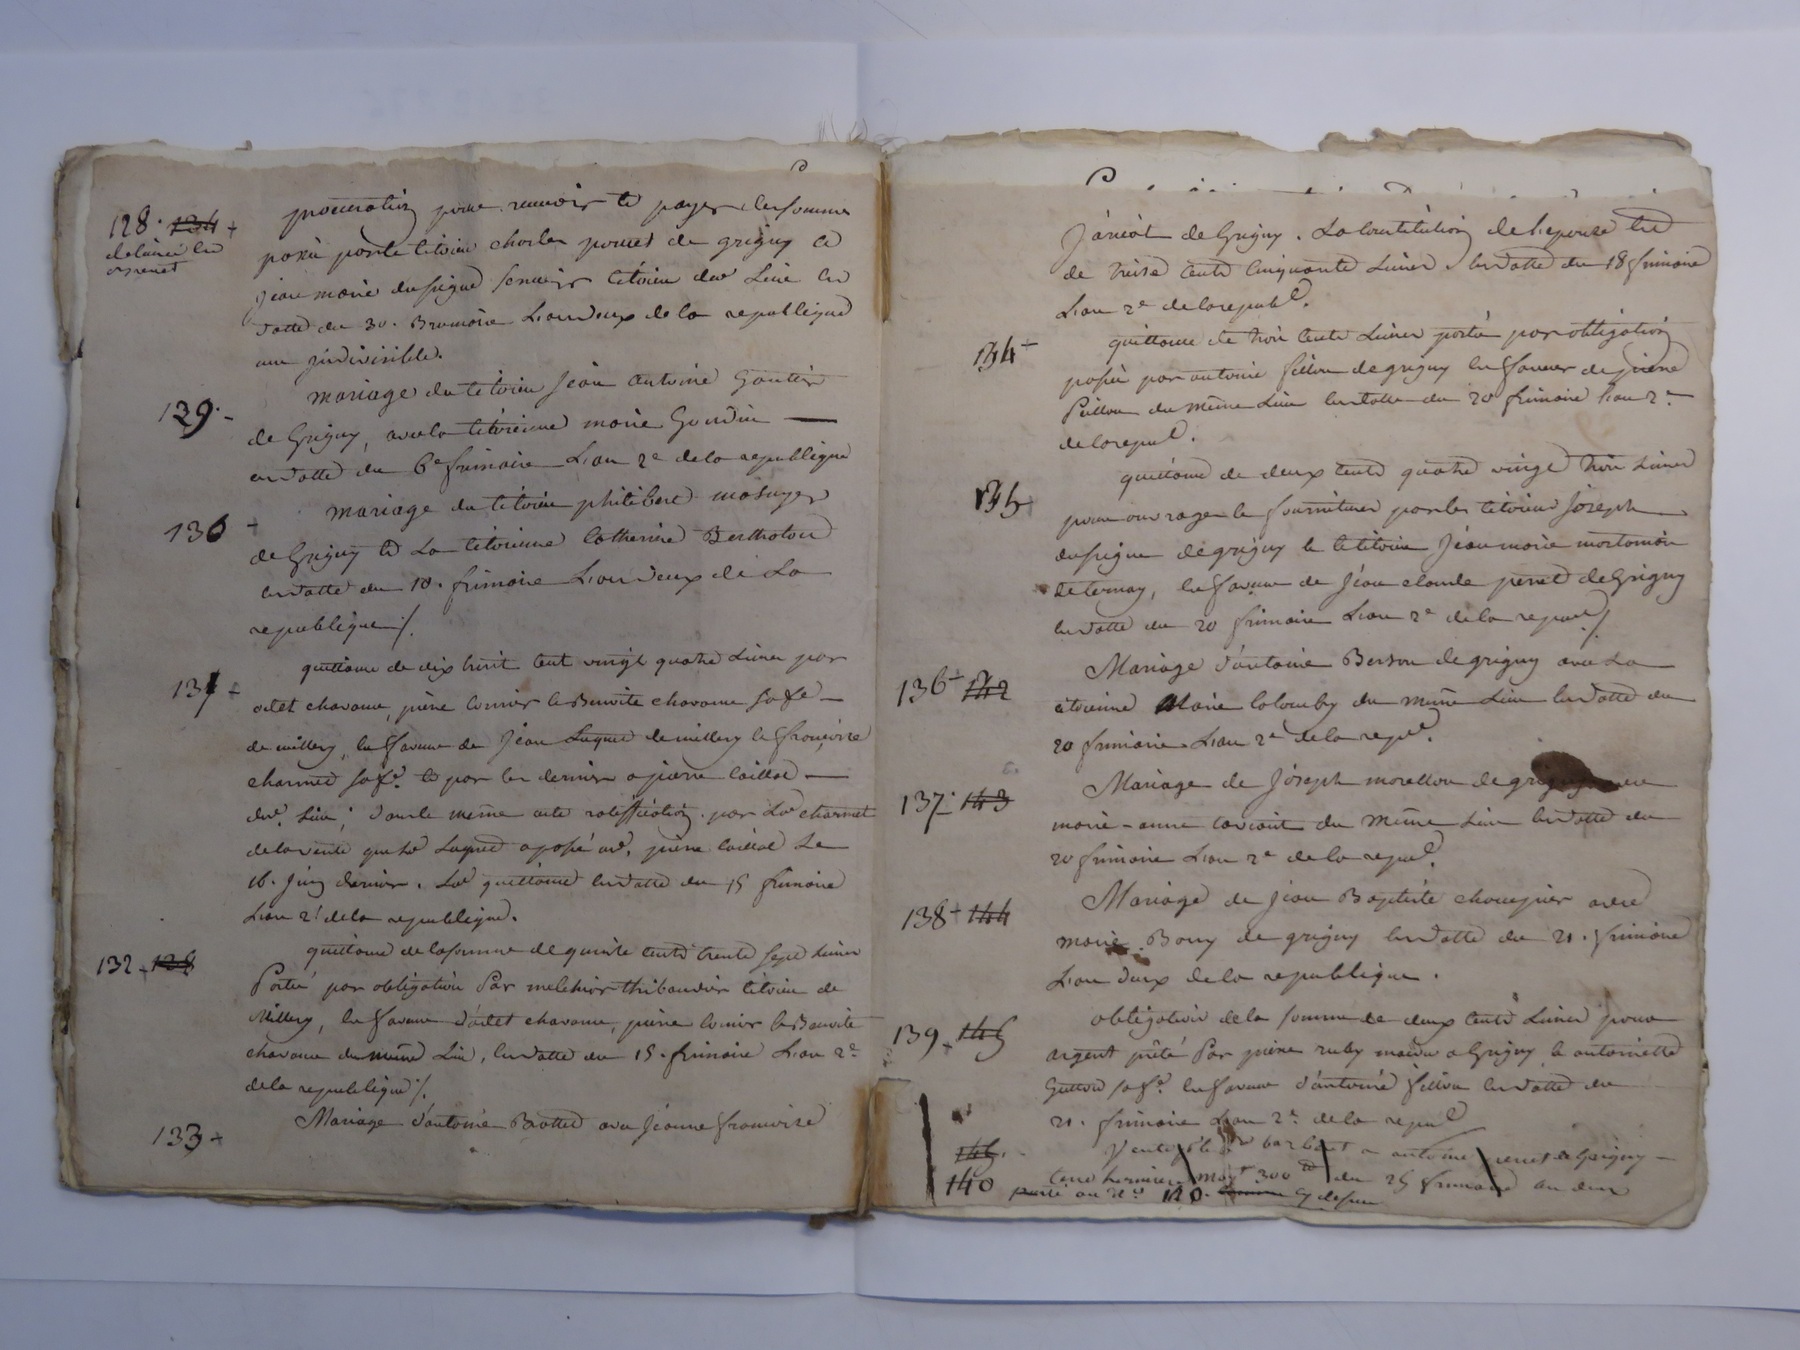 128. 134 +
procuration pour recevoir et payer les sommes
passée par le citoien charles perret de grigny et
jean marie dusigne citoien dud. Lieu en
datte du 30. Brumaire L'an deux de la republique
une indivisible.
129. -
mariage du citoien jean antoine Gontier
de Grigny, avec la citoienne marie Gourdin
en datte du 6e frimaire L'an 2e de la republique
130 +
mariage du citoien philibert mosuyer
de Grigny et La citoienne Catherine Bertholon
en datte du 10. frimaire L'an deux de La
republique /.
131 +
quittance de dix huit cent vingt quatre Livres par
odet chavanne, pierre et Benoite chavanne sa fe
de millery, en faveur de jean Luquet de millery et françoise
charmet sa fe. et par les derniers a pierre caillot
dud. Lieu; dans le meme acte ratiffication par Lad charmet
de la vente que led Luquet a passé aud. pierre caillot Le
16. juin dernier. Lad quittance en datte du 15 frimaire
L'an 2e de la republique.
132 + 128
quittance de la somme de quinze cents trente sept Livres
Portée par obligation Par melchior thibaudier citoien de
Millery, en faveur d'odet chavanne, pierre et Benoite
chavanne du même Lieu, en datte du 15. frimaire L'an 2e
de la republique /.
133 +
Mariage d'antoine Brottet avec jeanne françoise
janiot de Grigny. La Constitution de l'epouse est
de treize cents cinquante Livres, en datte du 18 frimaire
L'an 2e de la republ.
134 +
quittance de trois cents Livres portée par obligation
passée par antoine fillon de grigny en faveur de pierre
fillon du même Lieu en datte du 20 frimaire l'an 2e
de la repul.
135 +
quittance de deux cents quatre vingt trois Livres
pour ouvrages et fournitures par les citoiens joseph
dusigne de grigny et le citoien jean marie
de ternay, en faveur de jean claude perret de Grigny
en datte du 20 frimaire L'an 2e de la repul /.
136 + 142
Mariage d'antoine Berson de grigny avec La
citoienne Marie colomby du même Lieu en datte du
20 frimaire L'an 2e de la repul.
137. 143
Mariage de joseph morellon de grigny avec
marie-anne du même Lieu en datte du
20 frimaire L'an 2e de la repul.
138 + 144
Mariage de jean Baptiste avec
marie Bouy de grigny en datte du 21. frimaire
L'an deux de la republique.
139 + 145
obligation de la somme de deux cents Livres pour
argent prêté Par pierre ruby a Grigny et antoinette
Guttou sa fe. en faveur d'antoine fillon en datte du
21. frimaire L'an 2e de la repul
146.
140
Vente a antoine perret de Grigny
moy. 300 tt du 25 frimaire an deux
porté au n° 120. cy dessus